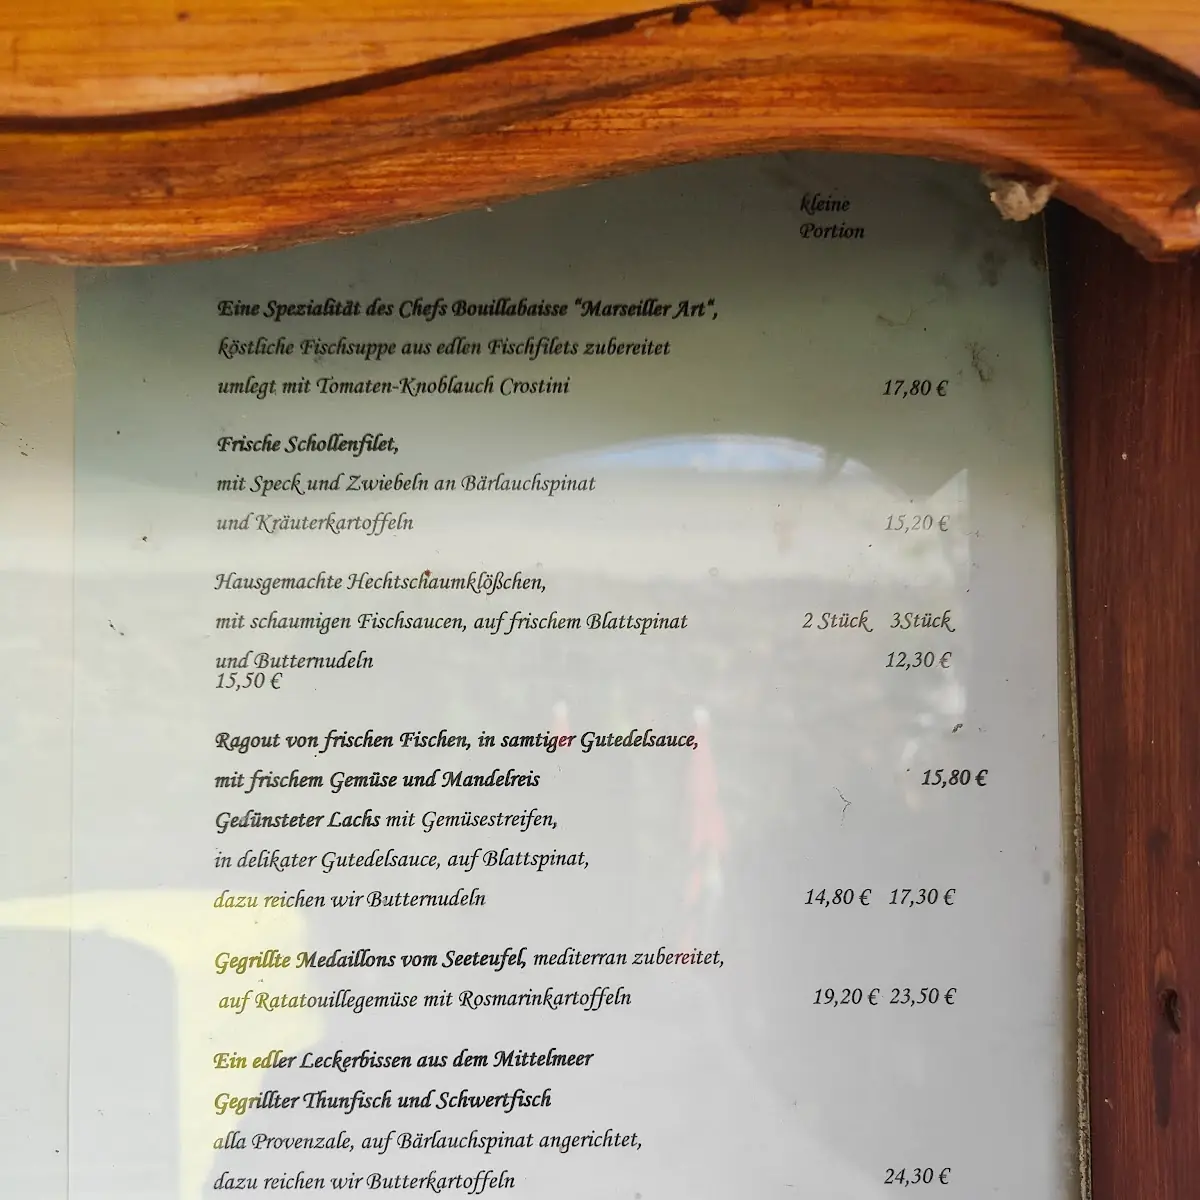 kleine
Portion
Eine Spezialität des Chefs Bouillabaisse "Marseiller Art",
köstliche Fischsuppe aus edlen Fischfilets zubereitet
umlegt mit Tomaten-Knoblauch Crostini 17,80 €
Frische Schollenfilet,
mit Speck und Zwiebeln an Bärlauchspinat
und Kräuterkartoffeln 15,20 €
Hausgemachte Hechtschaumklößchen,
mit schaumigen Fischsaucen, auf frischem Blattspinat 2 Stück 3Stück
und Butternudeln 12,30 €
15,50 €
Ragout von frischen Fischen, in samtiger Gutedelsauce,
mit frischem Gemüse und Mandelreis 15,80 €
Gedünsteter Lachs mit Gemüsestreifen,
in delikater Gutedelsauce, auf Blattspinat,
dazu reichen wir Butternudeln 14,80 € 17,30 €
Gegrillte Medaillons vom Seeteufel, mediterran zubereitet,
auf Ratatouillegemüse mit Rosmarinkartoffeln 19,20 € 23,50 €
Ein edler Leckerbissen aus dem Mittelmeer
Gegrillter Thunfisch und Schwertfisch
alla Provenzale, auf Bärlauchspinat angerichtet,
dazu reichen wir Butterkartoffeln 24,30 €